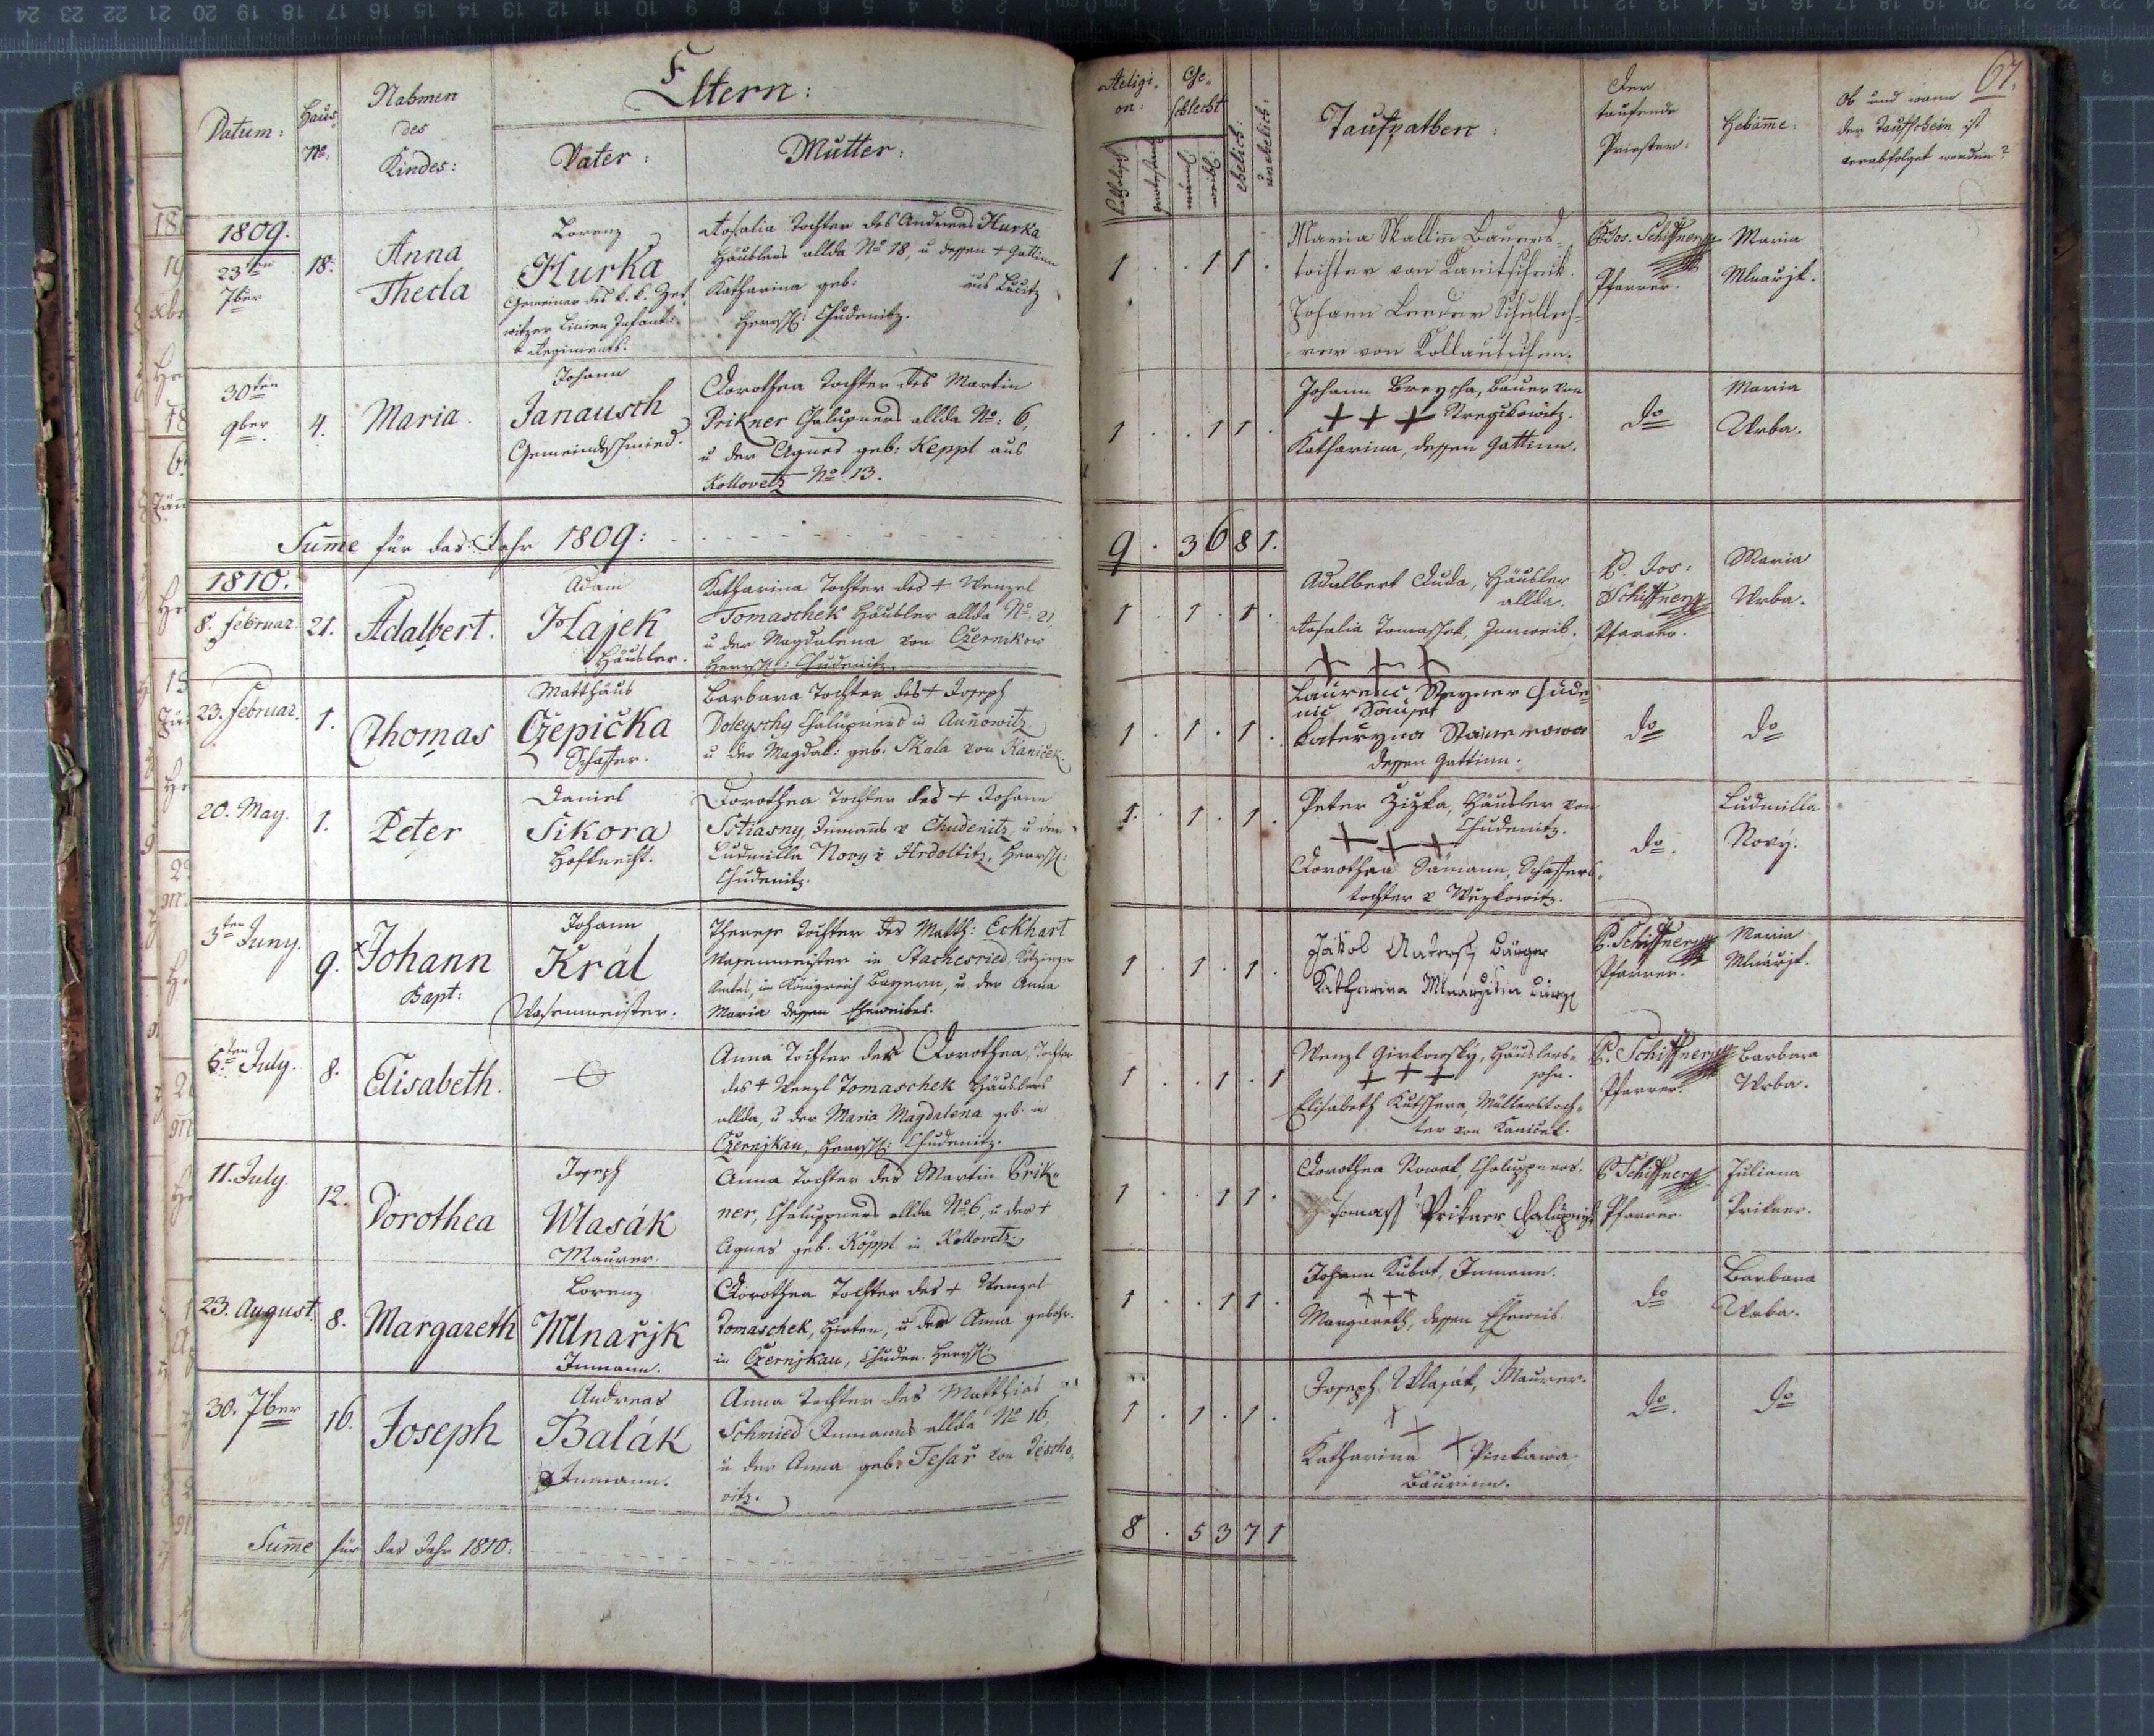 67.
Datum:
Haus
No:
Nahmen
des
Kindes:
Eltern:
Vater:
Mutter:
Religi-
on:
Ge-
schlecht
katholisch
protestant
männl:
weibl:
ehelich:
unehelich:
Taufpathen:
Der
taufende
Priester:
Hebamme:
Ob und wann
der Taufschein ist
verabfolget worden?
1809.
23ten
7ber
18.
Anna
Thecla
Lorenz
Hurka
Gemeiner des k. k. Zet
witzer Linien Infant:
Regiments.
Rosalia Tochter des Andreas Hurka
Häuslers allda No 18, u dessen + Gattinn
Katharina geb: aus Lucitz
Herrsch: Chudenitz.
1 . . 1 1 .
Maria Skallin Bauers-
tochter von Kanitschek.
Johann Leeder Schulleh-
rer von Kollautschen.
P. Jos. Schiffner
Pfarrer.
Maria
Mlnarjk.
30ten
9ber
4.
Maria.
Johann
Janausch
Gemeindschmied.
Dorothea Tochter des Martin
Prikner Chalupners allda No: 6,
u der Agnes geb: Keppl aus
Kollovetz No 13.
1 . . 1 1 .
Johann Breycha, Bauer von
+ + + Stregckowitz.
Katharina, dessen Gattinn.
do
Maria
Urba.
Sum̄e für das Jahr 1809:
9 . 3 6 8 1.
1810.
8. Februar.
21.
Adalbert.
Adam
Hajek
Häusler.
Katharina Tochter des + Wenzel
Tomaschek Häusler allda No: 21
u der Magdalena von Czernikow
Herrsch: Chudenitz.
1 . 1 . 1 .
Adalbert Duda, Häusler
allda.
Rosalia Tomaschek, Innweib.
+ + +
P. Jos:
Schiffner
Pfarrer.
Maria
Urba.
23. Februar.
1.
Thomas
Matthäus
Czepička
Schaffer.
Barbara Tochter des + Joseph
Doleyschy Chalupners in Aunowitz
u der Magdal: geb. Skala von Kaniček.
1 . 1 . 1 .
Laurenc Stayner Chude
nic Sauset
Kateryna Stainerowa
dessen Gattinn.
do
do
20. May.
1.
Peter
Daniel
Sikora
Hofknecht.
Dorothea Tochter des + Johann
Stiasny, Inmanns v Chudenitz, u der
Ludmilla Novy v Hrdoltitz, Herrsch:
Chudenitz.
1. . 1 . 1 .
Peter Zizka, Häusler von
Chudenitz.
+ + +
Dorothea Sämann, Schaffers-
tochter v Wuzkowitz.
do.
Ludmilla
Nový.
3ten Juny.
9.
Johann
Bapt:
Johann
Král
Wasenmeister.
Therese Tochter des Matth: Eckhart
Wasenmeister in Stachesried, Kötzinger
Amtes, im Königreich Bayern, u der Anna
Maria dessen Eheweibes.
1 . 1 . 1 .
Jakob Bürger
Katharina Mlnarzikin
P. Schiffner
Pfarrer.
Maria
Mlnařjk.
6ten July.
8.
Elisabeth.
Anna Tochter der Dorothea, Tochter
des + Wenzl Tomaschek Häuslers
allda, u der Maria Magdalena geb. in
Czernjkau, Herrsch: Chudenitz.
1 . . 1 . 1
Wenzl Girkowský, Häuslers-
+ + + sohn.
Elisabeth Kutschera, Müllerstoch-
ter von Kaniček.
P. Schiffner
Pfarrer.
Barbara
Urba.
11. July.
12.
Dorothea
Joseph
Wlasák
Maurer.
Anna Tochter des Martin Prik-
ner, Chaluppners allda No 6, u der +
Agnes geb. Köppl in Kollovetz.
1 . . 1 1 .
Dorothea Nowak, Chaluppners.
Tomass Prikner
P. Schiffner
Pfarrer.
Juliana
Prikner.
23. August.
8.
Margareth
Lorenz
Mlnařjk
Inmann.
Dorothea Tochter des + Wenzel
Tomaschek, Hirten, u der Anna gebohr.
in Czernjkau, Chuden. Herrsch:
1 . . 1 1 .
Johann Kubat, Inmann.
+ + +
Margareth, dessen Eheweib.
do
Barbara
Urba.
30. 7ber
16.
Joseph
Andreas
Balák
Inmann.
Anna Tochter des Matthias
Schmied Inmanns allda No 16,
u der Anna geb. Tesař von Tescho-
vitz.
1 . 1 . 1 .
Joseph Wlasák, Maurer.
+ + +
Katharina Pinkawa
Bäurinn.
do.
do
Sum̄e für das Jahr 1810:
8 . 5 3 7 1